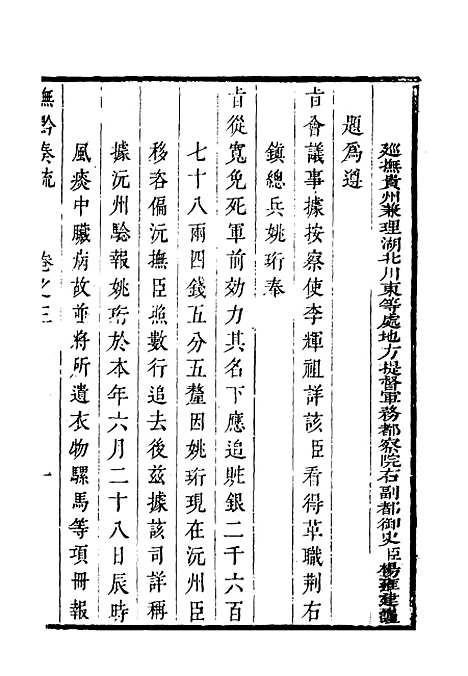 巡撫貴州兼理湖北川東等處地方提督軍務都察院右副都御史臣楊雍建謹
題為遵
旨會議事據按察使李輝祖詳該臣看得革職荆右
鎮總兵姚珩奉
旨從寬免死軍前効力其名下應追贓銀二千六百
七十八兩四錢五分五釐因姚珩現在沅州臣
移咨偏沅撫臣照數行追去後兹據該司詳稱
據沅州騐報姚珩於本年六月二十八日辰時
風痰中臟病故並將所遺衣物騾馬等項冊報
撫黔奏疏
卷之三
一